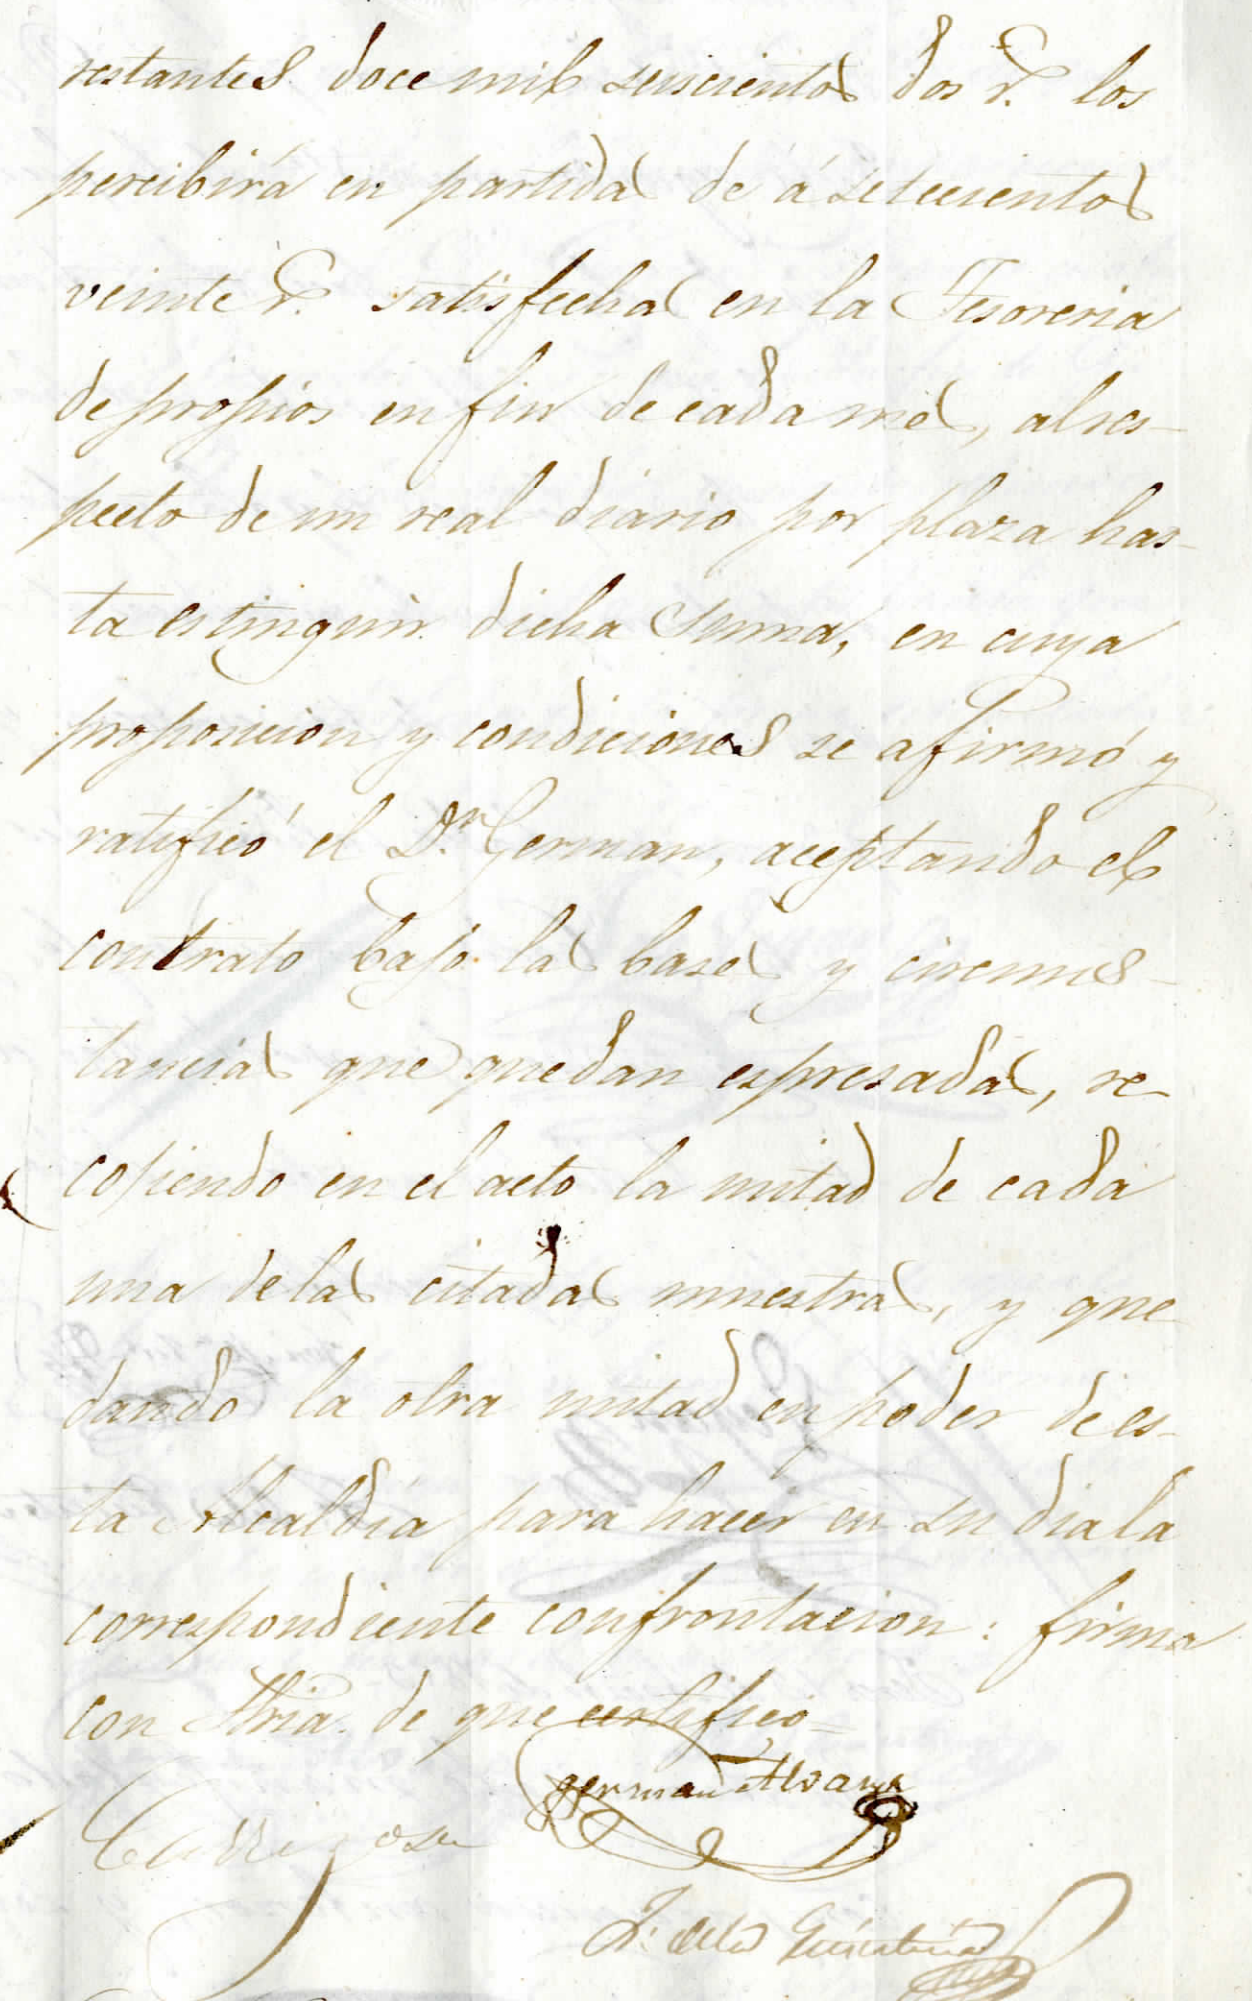 restantes doce mil seiscientos dos r.s los
percibirá en partidas de á setecientos
veinte r.s satisfechas en la Tesoreria
de propios en fin de cada mes, al res-
pecto de un real diario por plaza has-
ta estinguir dicha suma, en cuya
proposicion y condiciones se afirmó y
ratificó el D.n German, aceptando el
contrato bajo las bases y circuns-
tancias que quedan espresadas, re-
cojiendo en el acto la mitad de cada
una de las citadas muestras, y que
dando la otra mitad en poder de es-
ta Alcaldia para hacer en su dia la
correspondiente confrontacion: firma
con Sria. de que certifico=
German Alvarez
Carrizosa
J. de la Quintana